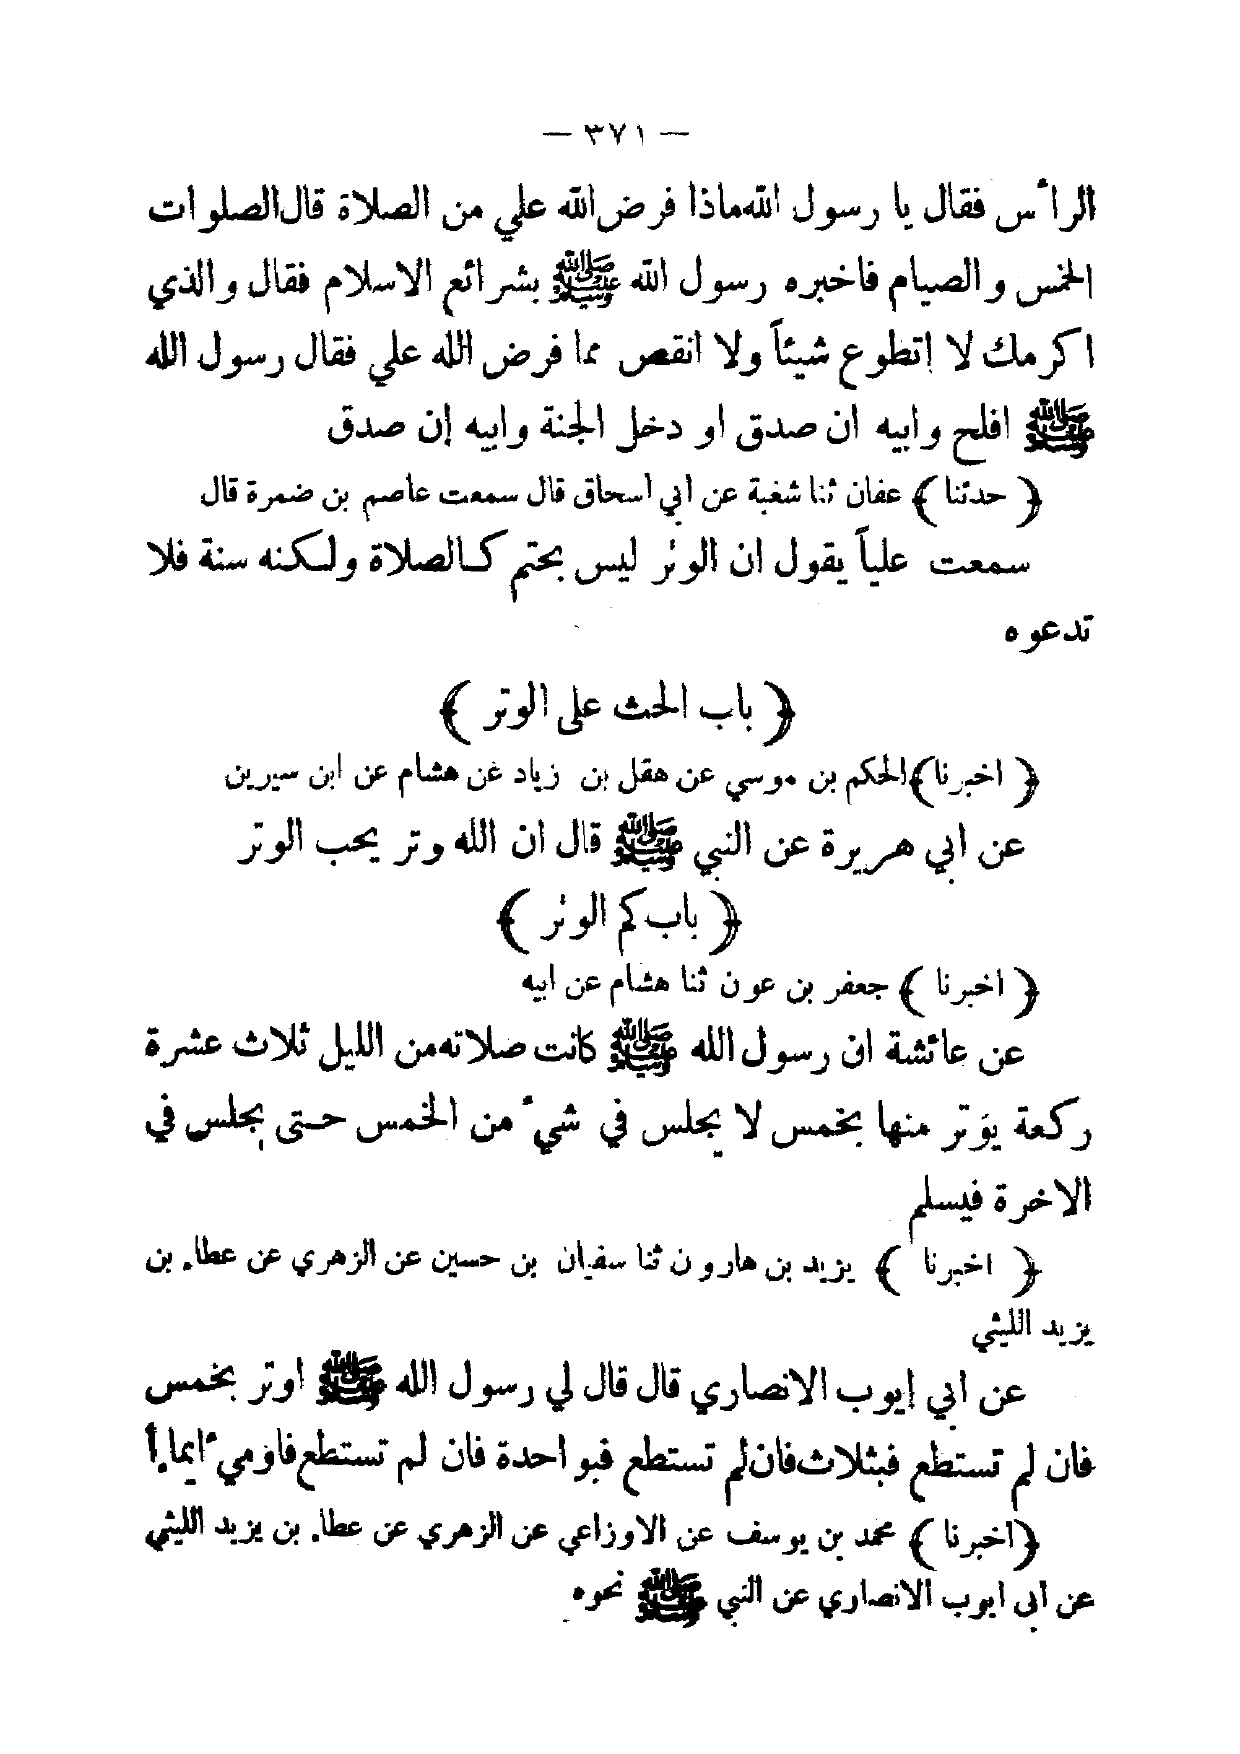 — ٣٧١ —
الرأس فقال يا رسول الله ماذا فرض الله علي من الصلاة قال الصلوات
الخمس والصيام فاخبره رسول الله ﷺ بشرائع الاسلام فقال والذي
اكرمك لا إتطوع شيئاً ولا انقص مما فرض الله علي فقال رسول الله
ﷺ افلح وابيه ان صدق او دخل الجنة وابيه إن صدق
﴿ حدثنا ﴾ عفان ثنا شغبة عن أبي أسحاق قال سمعت عاصم بن ضمرة قال
سمعت علياً يقول ان الوتر ليس بحتم كالصلاة ولكنه سنة فلا
تدعوه
﴿ باب الحث على الوتر ﴾
﴿ اخبرنا ﴾ الحكم بن موسي عن هقل بن زياد غن هشام عن ابن سيرين
عن أبي هريرة عن النبي ﷺ قال ان الله وتر يحب الوتر
﴿ باب كم الوتر ﴾
﴿ اخبرنا ﴾ جعفر بن عون ثنا هشام عن ابيه
عن عائشة ان رسول الله ﷺ كانت صلاته من الليل ثلاث عشرة
ركعة يوتر منها بخمس لا يجلس في شيء من الخمس حتى يجلس في
الاخرة فيسلم
﴿ اخبرنا ﴾ يزيد بن هارون ثنا سفيان بن حسين عن الزهري عن عطاء بن
يزيد الليثي
عن ابي إيوب الانصاري قال قال لي رسول الله ﷺ اوتر بخمس
فان لم تستطع فبثلاث فان لم تستطع فبواحدة فان لم تستطع فاوميء ايماءأ
﴿ اخبرنا ﴾ محمد بن يوسف عن الاوزاعي عن الزهري عن عطاء بن يزيد الليثي
عن ابى ايوب الانصاري عن النبي ﷺ نحوه